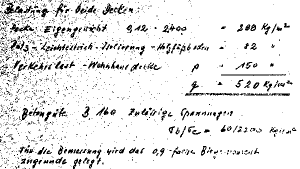 Belastung für beide Decken
Decke Eigengewicht 0,12 · 2400 = 288 kg/m²
Putz - Leichtestrich - Isolierung - Holzfußboden = 82 "
Verkehrslast - Wohnhausdecke p = 150 "
q = 520 kg/m²
Betongüte B 160 Zulässige Spannungen
σb/σe = 60/2200 kg/cm²
Für die Bemessung wird das 0,9-fache Biegemoment
zugrunde gelegt.